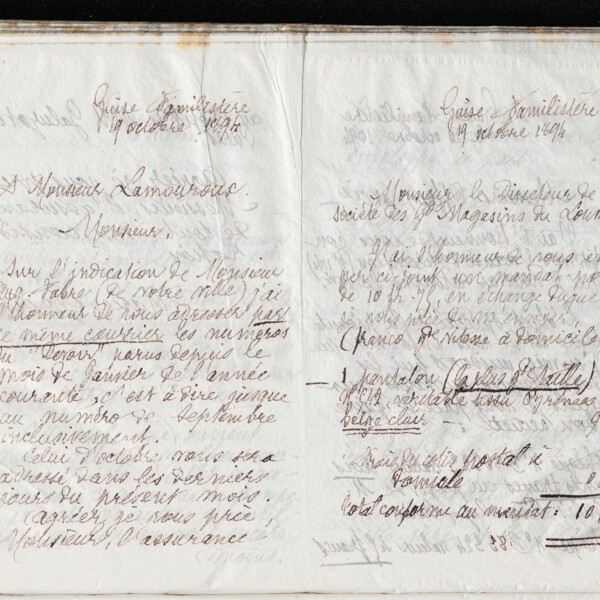 Guise Familistère
19 octobre 1894
A Monsieur Lamouroux
Monsieur.
Sur l'indication de Monsieur
Aug. Fabre (de votre ville) j'ai
l'honneur de vous adresser par
ce même courrier les numéros
du "Devoir" parus depuis le
mois de Janvier de l'année
courante, c'est à dire jusque
au numéro de Septembre
inclusivement.
Celui d'octobre vous sera
adressé dans les derniers
jours du présent mois.
Agréez, je vous prie,
Monsieur, l'assurance
Guise Familistère
19 octobre 1894
Monsieur le Directeur de
société des Gds Magasins du Lou
J'ai l'honneur de vous
ci-joint un mandat
de 10 fr. en échange
je vous prie de m'envoyer
(franco gde vitesse à domicile
1 pantalon (la plus gde taille)
véritable tissu Pyrénées
beige clair
Frais du colis postal à
domicile 0
Total conforme au mandat : 10